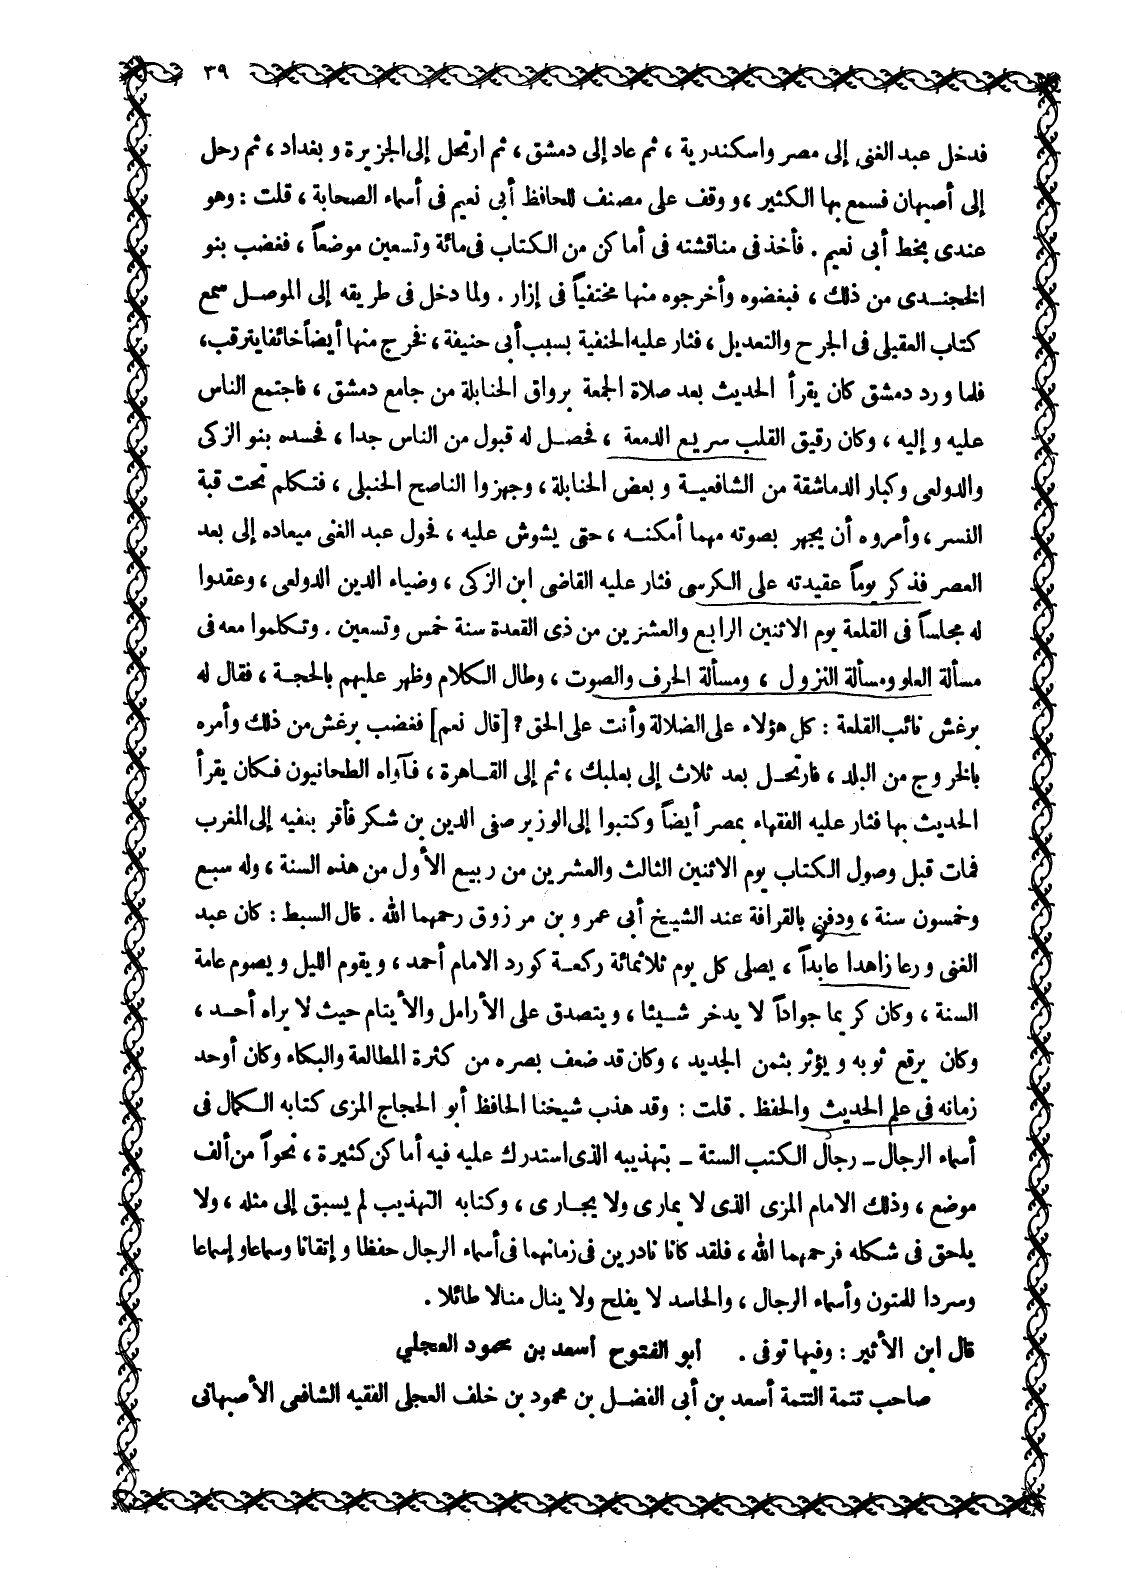 ٣٩
فدخل عبد الغنى إلى مصر واسكندرية ، ثم عاد إلى دمشق ، ثم ارتحل إلى الجزيرة و بغداد ، ثم رحل
إلى أصبهان فسمع بها الكثير ، و وقف على مصنف للحافظ أبى نعيم فى أسماء الصحابة ، قلت : وهو
عندى بخط أبى نعيم . فأخذ فى مناقشته فى أماكن من الكتاب فى مائة وتسعين موضعاً ، فغضب بنو
الخجندى من ذلك ، فبغضوه وأخرجوه منها مختفياً فى إزار . ولما دخل فى طريقه إلى الموصل سمع
كتاب العقيلى فى الجرح والتعديل ، فثار عليه الحنفية بسبب أبى حنيفة ، فخرج منها أيضاً خائفا يترقب ،
فلما ورد دمشق كان يقرأ الحديث بعد صلاة الجمعة برواق الحنابلة من جامع دمشق ، فاجتمع الناس
عليه و إليه ، وكان رقيق القلب سريع الدمعة ، فحصل له قبول من الناس جدا ، فحسده بنو الزكى
والدولعى وكبار الدماشقة من الشافعية و بعض الحنابلة ، وجهزوا الناصح الحنبلى ، فتكلم تحت قبة
النسر ، وأمروه أن يجهر بصوته مهما أمكنه ، حتى يشوش عليه ، فحول عبد الغنى ميعاده إلى بعد
العصر فذكر يوماً عقيدته على الكرسى فثار عليه القاضى ابن الزكى ، وضياء الدين الدولعى ، وعقدوا
له مجلساً فى القلعة يوم الاثنين الرابع والعشرين من ذى القعدة سنة خمس وتسعين . وتكلموا معه فى
مسألة العلو ومسألة النزول ، ومسألة الحرف والصوت ، وطال الكلام وظهر عليهم بالحجة ، فقال له
برغش نائب القلعة : كل هؤلاء على الضلالة وأنت على الحق ? [قال نعم] فغضب برغش من ذلك وأمره
بالخروج من البلد ، فارتحل بعد ثلاث إلى بعلبك ، ثم إلى القاهرة ، فآواه الطحانيون فكان يقرأ
الحديث بها فثار عليه الفقهاء بمصر أيضاً وكتبوا إلى الوزير صفى الدين بن شكر فأقر بنفيه إلى المغرب
فمات قبل وصول الكتاب يوم الاثنين الثالث والعشرين من ربيع الأول من هذه السنة ، وله سبع
وخمسون سنة ، ودفن بالقرافة عند الشيخ أبى عمرو بن مرزوق رحمهما الله . قال السبط : كان عبد
الغنى ورعا زاهدا عابداً ، يصلى كل يوم ثلاثمائة ركعة كورد الامام أحمد ، و يقوم الليل و يصوم عامة
السنة ، وكان كريما جواداً لا يدخر شيئا ، و يتصدق على الأرامل والأيتام حيث لا يراه أحد ،
وكان يرقع ثوبه و يؤثر بثمن الجديد ، وكان قد ضعف بصره من كثرة المطالعة والبكاء وكان أوحد
زمانه فى علم الحديث والحفظ . قلت : وقد هذب شيخنا الحافظ أبو الحجاج المزى كتابه الكمال فى
أسماء الرجال ــ رجال الكتب الستة ــ بتهذيبه الذى استدرك عليه فيه أماكن كثيرة ، نحواً من ألف
موضع ، وذلك الامام المزى الذى لا يمارى ولا يجارى ، وكتابه التهذيب لم يسبق إلى مثله ، ولا
يلحق فى شكله فرحمهما الله ، فلقد كانا نادرين فى زمانهما فى أسماء الرجال حفظا و إتقانا وسماعا و إسماعا
وسردا للمتون وأسماء الرجال ، والحاسد لا يفلح ولا ينال منالا طائلا .
قال ابن الأثير : وفيها توفى . أبو الفتوح أسعد بن محمود العجلي
صاحب تتمة التتمة أسعد بن أبى الفضل بن محمود بن خلف العجلى الفقيه الشافعى الأصبهانى